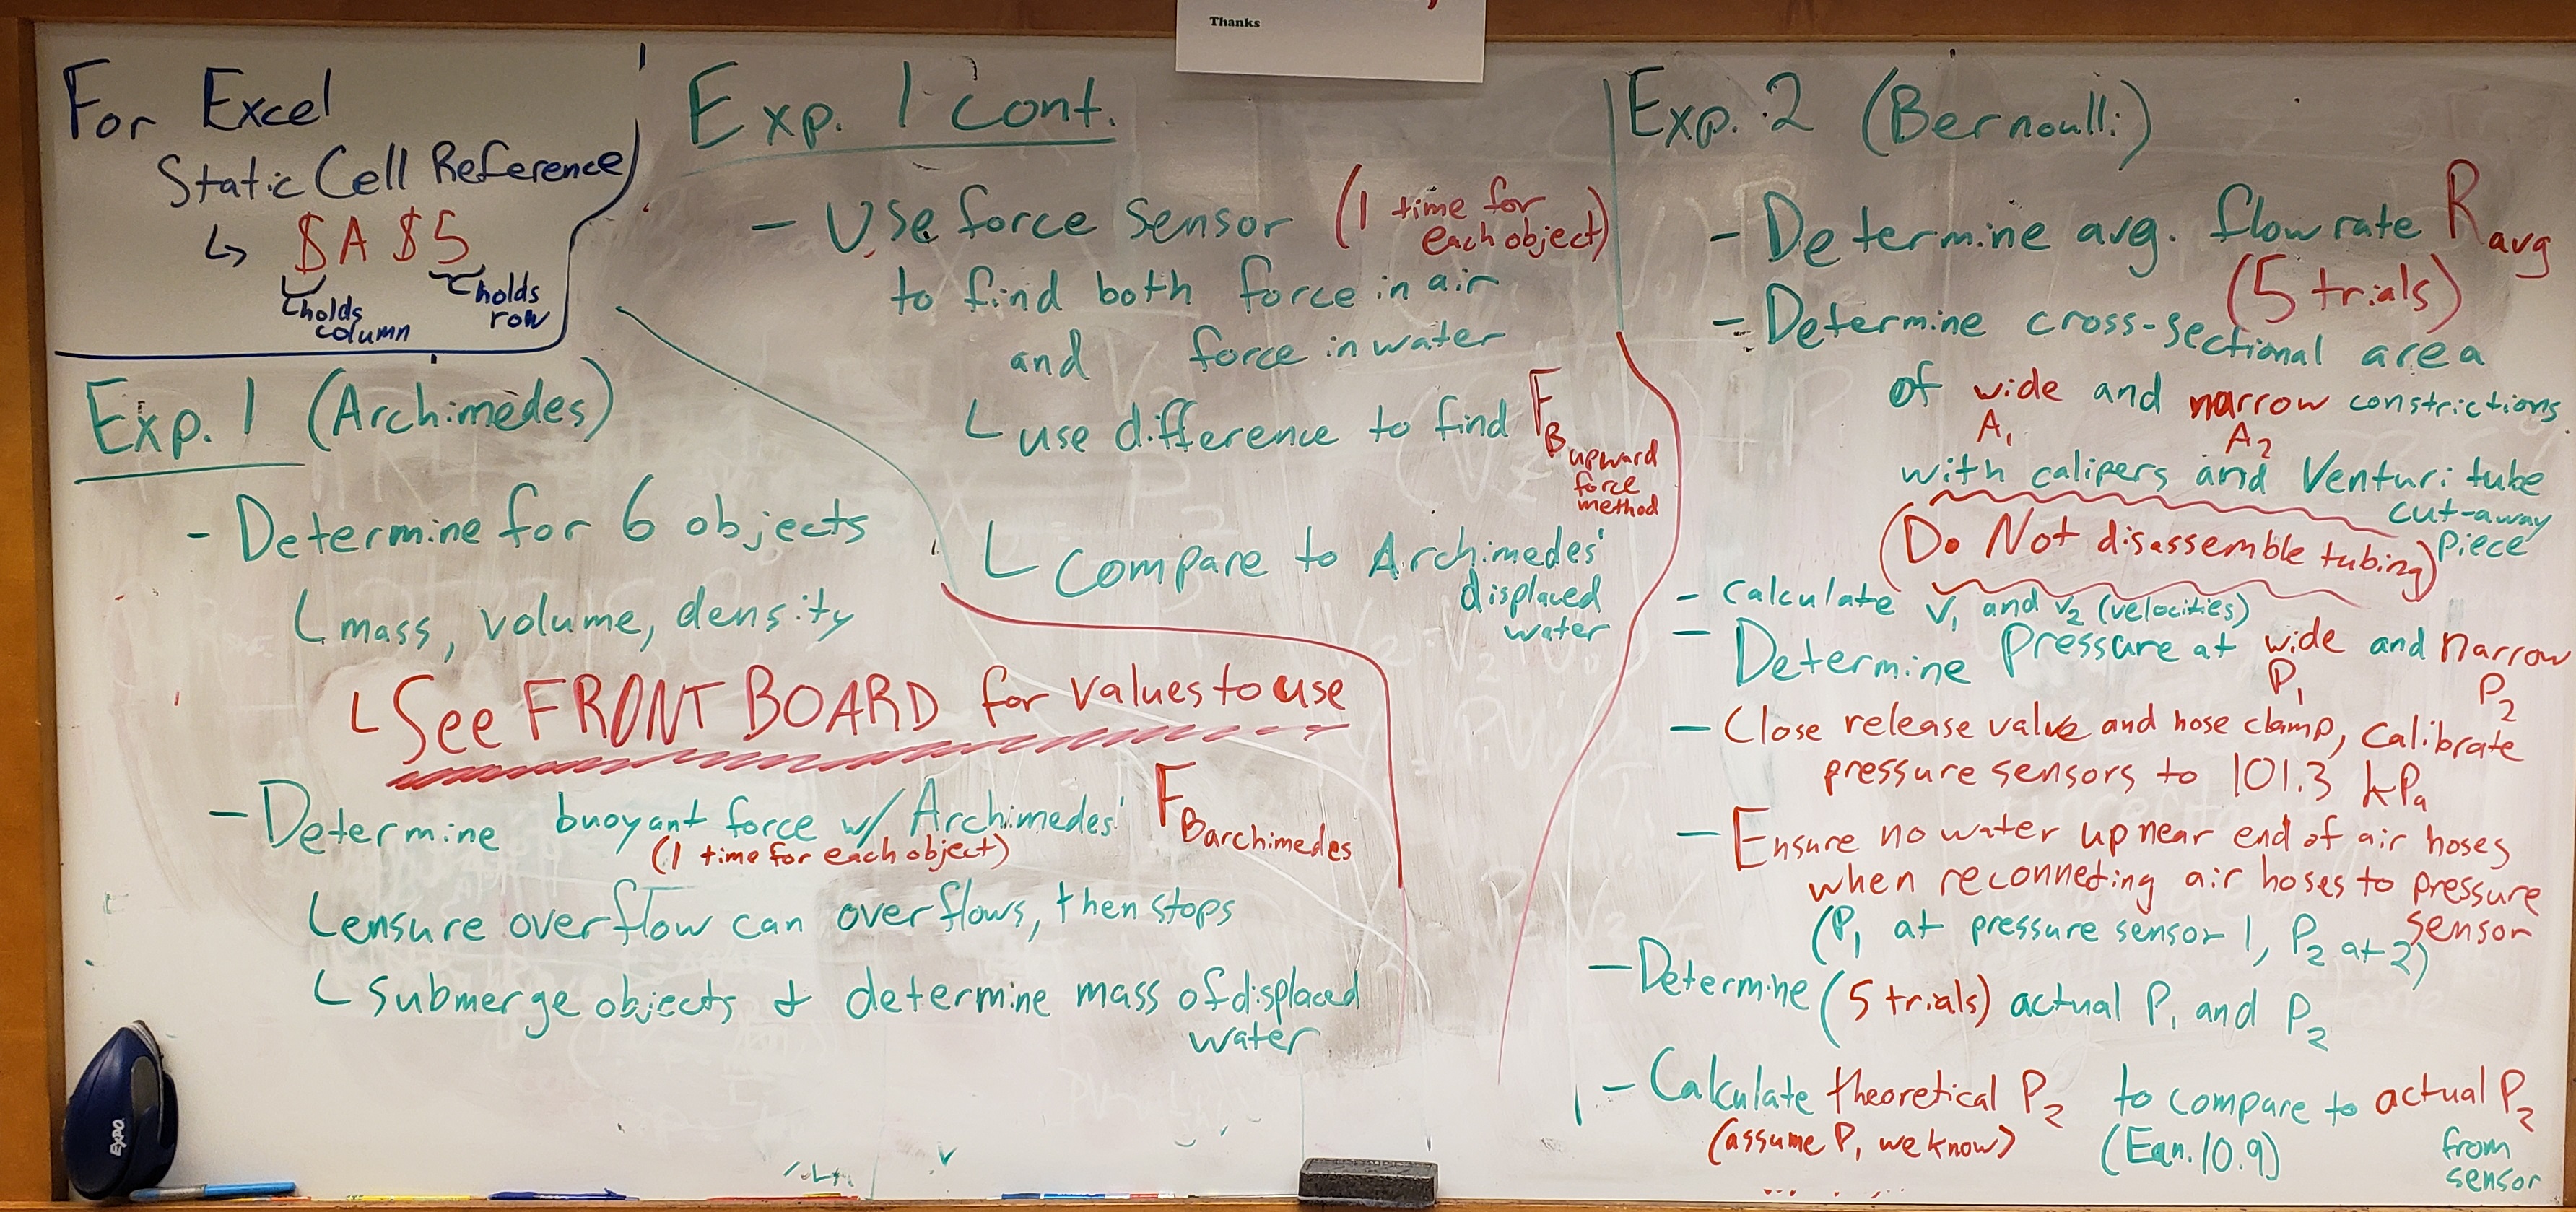 Thanks
For Excel
Static Cell Reference
↳ $A $5
holds column
holds row
Exp. 1 (Archimedes)
- Determine for 6 objects
└ mass, volume, density
└ See FRONT BOARD for values to use
- Determine buoyant force w/ Archimedes' F_B archimedes
(1 time for each object)
└ ensure overflow can overflows, then stops
└ submerge objects & determine mass of displaced
water
Exp. 1 cont.
- Use force sensor (1 time for
each object)
to find both force in air
and force in water
└ use difference to find F_B upward
force
method
└ Compare to Archimedes'
displaced
water
Exp. 2 (Bernoulli)
- Determine avg. flow rate R avg
(5 trials)
- Determine cross-sectional area
of wide and narrow constrictions
A₁ A₂
with calipers and Venturi tube
cut-away
piece
(Do Not disassemble tubing)
- Calculate v₁ and v₂ (velocities)
- Determine Pressure at wide and narrow
P₁ P₂
- Close release valve and hose clamp, calibrate
pressure sensors to 101.3 kPa
- Ensure no water up near end of air hoses
when reconneting air hoses to pressure
sensor
(P₁ at pressure sensor 1, P₂ at 2)
- Determine (5 trials) actual P₁ and P₂
- Calculate theoretical P₂ to compare to actual P₂
(assume P₁ we know) (Eqn. 10.9) from
sensor
EXPO